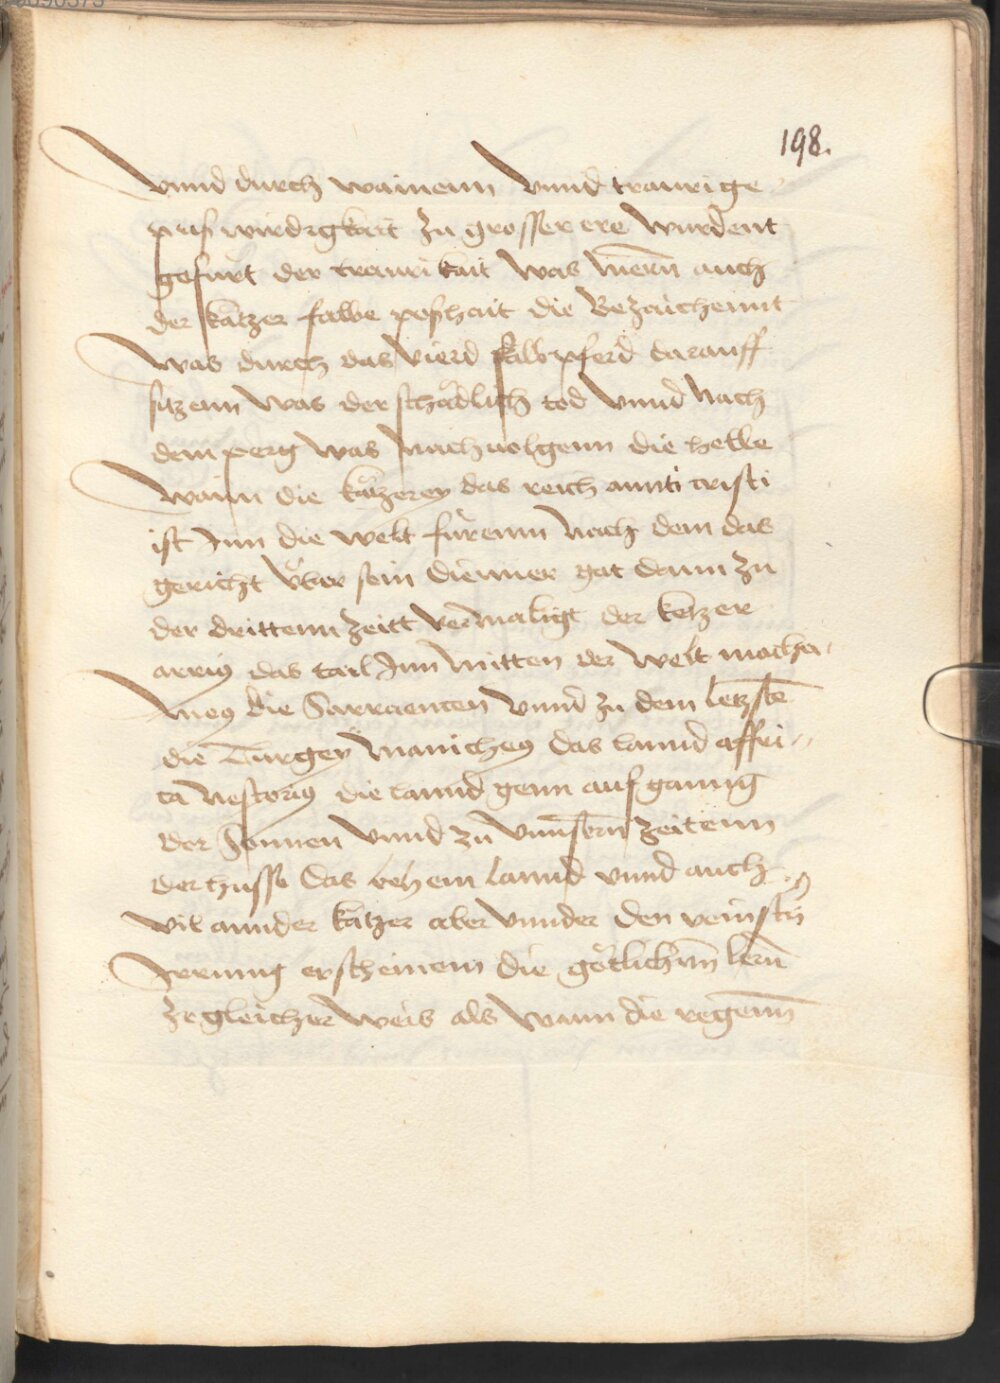 198.
vnnd durch wainenn vnnd traurige
pus wirdigkait zu grosser ere wurdent
gefurt der traurikait was mern auch
der kätzer falbe poshait die Bezaichennt
was durch das vierd falb pferd darauff
sitzenn was der schedlich tod vnnd nach
dem perg was nachuolgenn die helle
Wann die kätzerey das reich annti cristi
ist Jnn die welt fürenn nach dem das
gericht vber sein dienner gat dann zu
der drittenn zeitt vermaligt der ketzer
arrius das tail Jnn mitten der welt macho,
meus die Sarracenen vnnd zu dem letzste
die Turgey manicheus das lannd affri,,
ca nestorius die lannd genn aufganng
der Sonnen vnnd zu vnnsern zeitenn
der husss das behem lannd vnnd auch
vil annder kätzer aber vnnder den veinstn
Jrrung erscheinem die götlichnn lern
Ze gleicher weis als wann die regenn